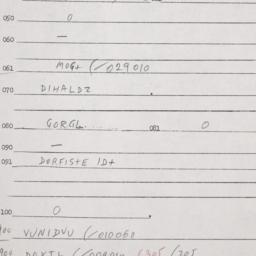 050 0
060 —
061 MOG+ (/029010
070 DIHALDZ .
080 GORGL. 081 0
090 —
091 DORFISTE ID+
100 0 .
VUNIDVU (/010060